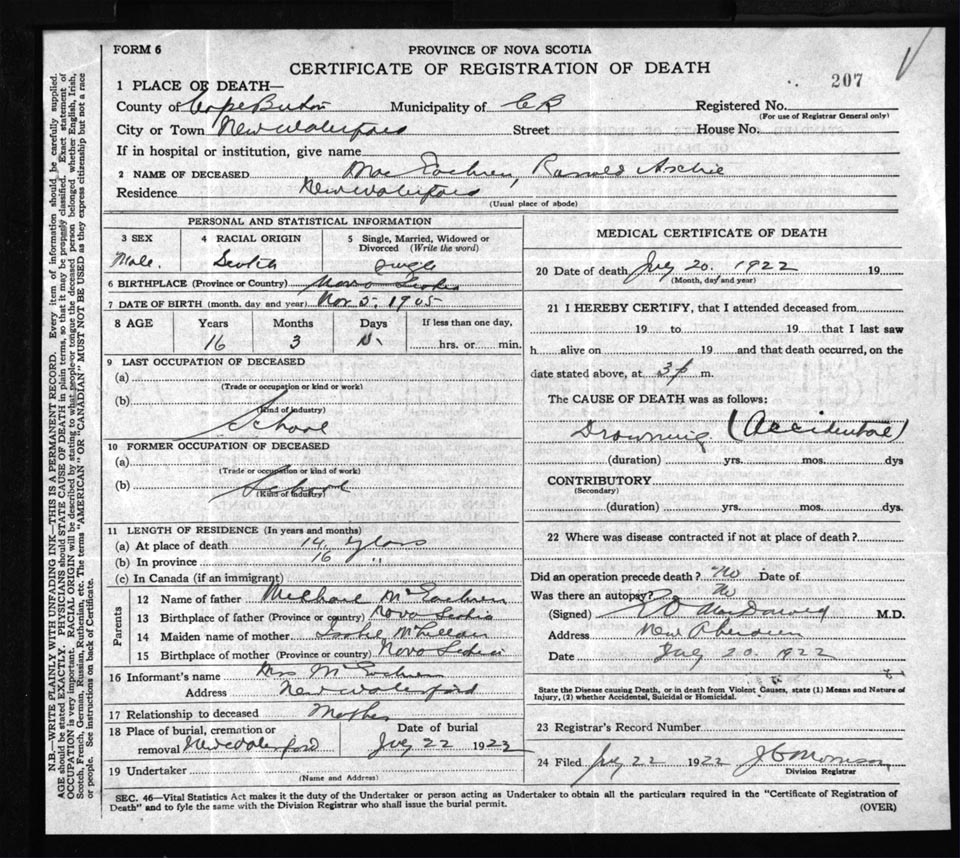 FORM 6
PROVINCE OF NOVA SCOTIA
CERTIFICATE OF REGISTRATION OF DEATH
207
1 PLACE OF DEATH—
County of Cape Breton Municipality of C B Registered No.
(For use of Registrar General only)
City or Town New Waterford Street House No.
If in hospital or institution, give name
2 NAME OF DECEASED Mac Eachren, Ronald Archie
Residence New Waterford
(Usual place of abode)
PERSONAL AND STATISTICAL INFORMATION
3 SEX 4 RACIAL ORIGIN 5 Single, Married, Widowed or Divorced (Write the word)
Male. Scotch Single
6 BIRTHPLACE (Province or Country) Nova Scotia
7 DATE OF BIRTH (month, day and year) Nov 5. 1905
8 AGE Years Months Days If less than one day,
16 3 hrs. or min.
9 LAST OCCUPATION OF DECEASED
(a)
(Trade or occupation or kind or work)
(b)
(Kind of industry)
School
10 FORMER OCCUPATION OF DECEASED
(a)
(Trade or occupation or kind of work)
(b) School
(Kind of industry)
11 LENGTH OF RESIDENCE (In years and months)
(a) At place of death 14 years
(b) In province 16 "
(c) In Canada (if an immigrant)
Parents
12 Name of father Michael McEachren
13 Birthplace of father (Province or country) Nova Scotia
14 Maiden name of mother McLellan
15 Birthplace of mother (Province or country) Nova Scotia
16 Informant's name Mrs McEachren
Address New Waterford
17 Relationship to deceased Mother
18 Place of burial, cremation or removal New Waterford Date of burial July 22 1922
19 Undertaker
(Name and Address)
MEDICAL CERTIFICATE OF DEATH
20 Date of death July 20. 1922 19
(Month, day and year)
21 I HEREBY CERTIFY, that I attended deceased from
19 to 19 that I last saw
h alive on 19 and that death occurred, on the
date stated above, at 3 p m.
The CAUSE OF DEATH was as follows:
Drowning (Accidental)
(duration) yrs. mos. dys
CONTRIBUTORY
(Secondary)
(duration) yrs. mos. dys.
22 Where was disease contracted if not at place of death?
Did an operation precede death? No Date of
Was there an autopsy? No
(Signed) M.D.
Address New Aberdeen
Date July 20. 1922
State the Disease causing Death, or in death from Violent Causes, state (1) Means and Nature of
Injury, (2) whether Accidental, Suicidal or Homicidal.
23 Registrar's Record Number
24 Filed July 22 1922 J C Morrison
Division Registrar
SEC. 46—Vital Statistics Act makes it the duty of the Undertaker or person acting as Undertaker to obtain all the particulars required in the "Certificate of Registration of
Death" and to fyle the same with the Division Registrar who shall issue the burial permit. (OVER)
N.B.—WRITE PLAINLY WITH UNFADING INK—THIS IS A PERMANENT RECORD. Every item of information should be carefully supplied.
AGE should be stated EXACTLY. PHYSICIANS should STATE CAUSE OF DEATH in plain terms, so that it may be properly classified. Exact statement of
OCCUPATION is very important. RACIAL ORIGIN will be described by stating to what people or tongue the deceased person belonged whether English, Irish,
Scotch, French, German, Russian, Ruthenian, etc. The terms "AMERICAN" OR "CANADIAN" MUST NOT BE USED as they express citizenship but not a race
or people. See instructions on back of Certificate.